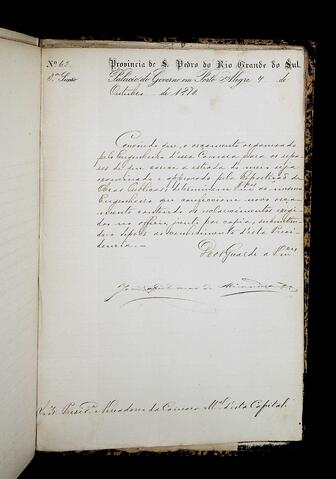 Nº 62. Provincia de S. Pedro do Rio Grande do Sul.
Palacio do Governo em Porto Alegre 4 de
Outubro de 1870.
Convindo que, o orçamento organisado
pelo Engenheiro d'essa Camara para os reparos
de que carece a estrada de seja
examinado e approvado pela Repartição de
Obras Publicas, determinem V.ces ao mesmo
Engenheiro que confeccione novo orça-
mento contendo os esclarecimentos exigi-
dos no officio junto por copia, submetten-
do-o depois ao conhecimento d'esta Presi-
dencia. —
Deos Guarde a V.ces
Snrs. Presid.e Vereadores da Camara M.al d'esta Capital